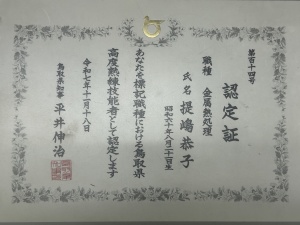 第百十四号
認定証
職種 金属熱処理
氏名 提嶋恭子
昭和六十年八月二十日生
あなたを標記職種における鳥取県
高度熟練技能者として認定します
令和七年十一月十八日
鳥取県知事 平井伸治